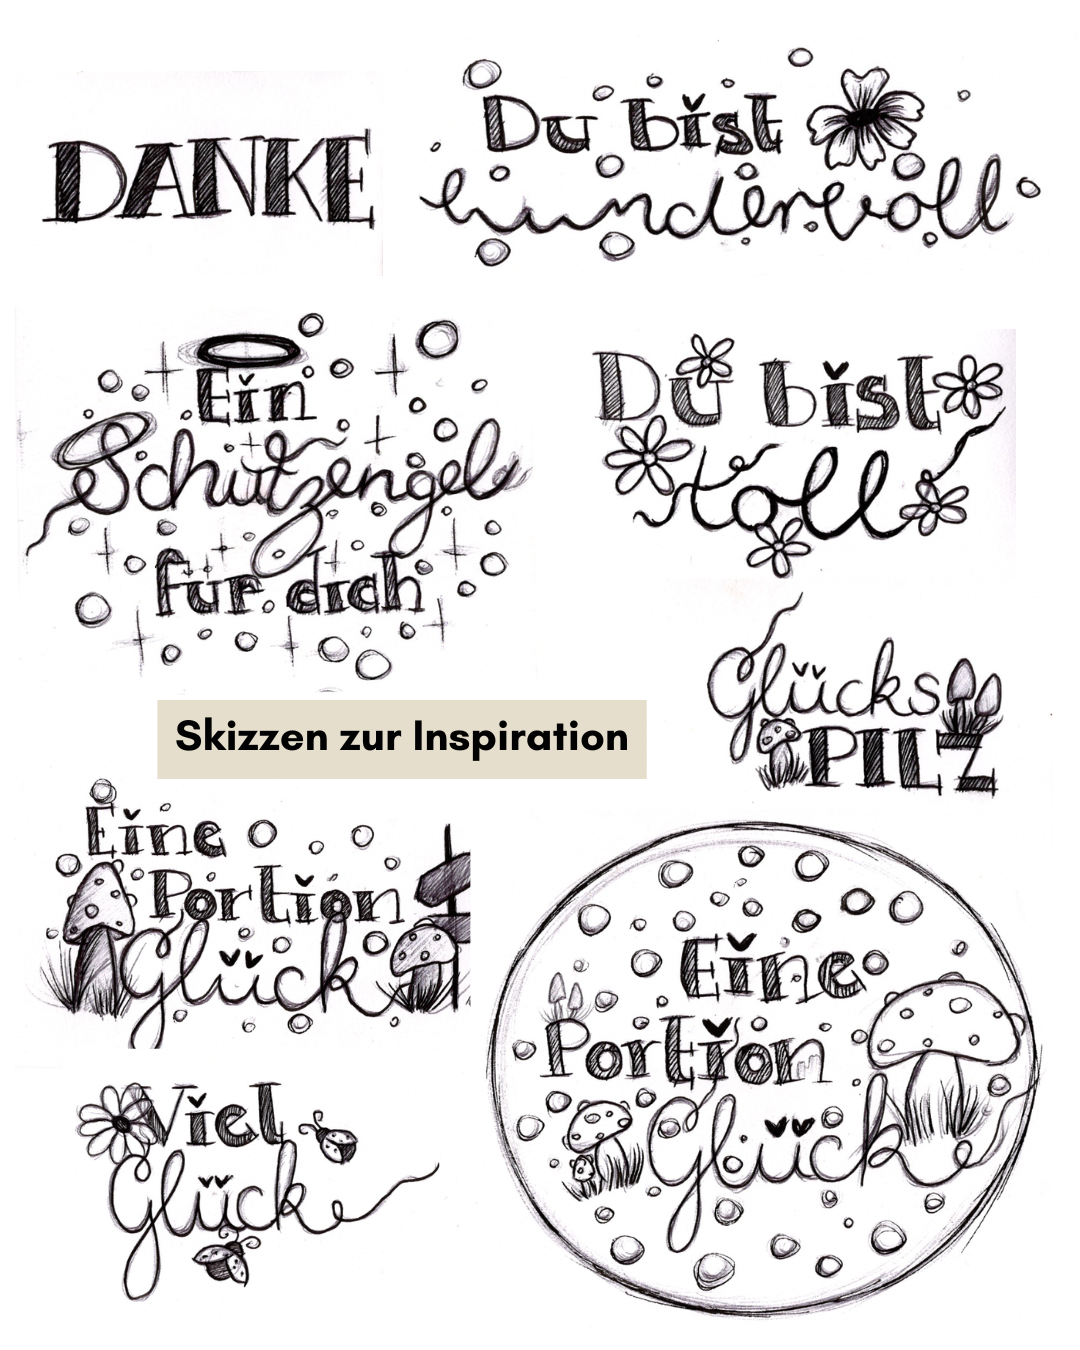 DANKE
Du bist
wundervoll
Ein
Schutzengel
für dich
Du bist
toll
Glücks
PILZ
Skizzen zur Inspiration
Eine
Portion
Glück
Eine
Portion
Glück
Viel
Glück